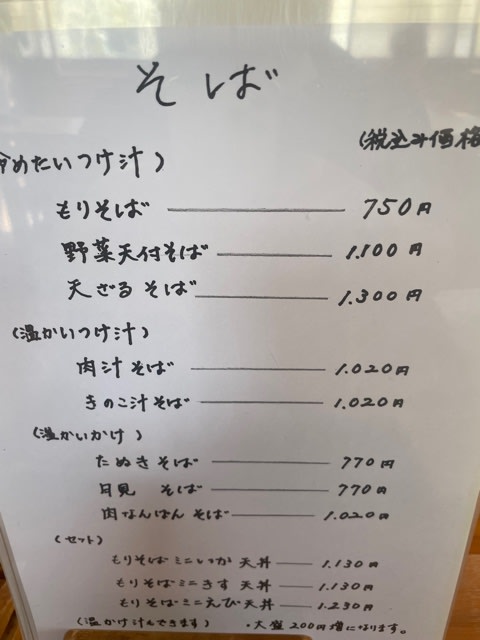 そば
(税込み価格
冷めたいつけ汁)
もりそば 750円
野菜天付そば 1.100円
天ざるそば 1.300円
(温かいつけ汁)
肉汁そば 1.020円
きのこ汁そば 1.020円
(温かいかけ)
たぬきそば 770円
月見 そば 770円
肉なんばんそば 1.020円
(セット)
もりそばミニいか天丼 1.130円
もりそばミニきす天丼 1.130円
もりそばミニえび天丼 1.230円
(温かけ汁もできます) ・大盛200円増になります。